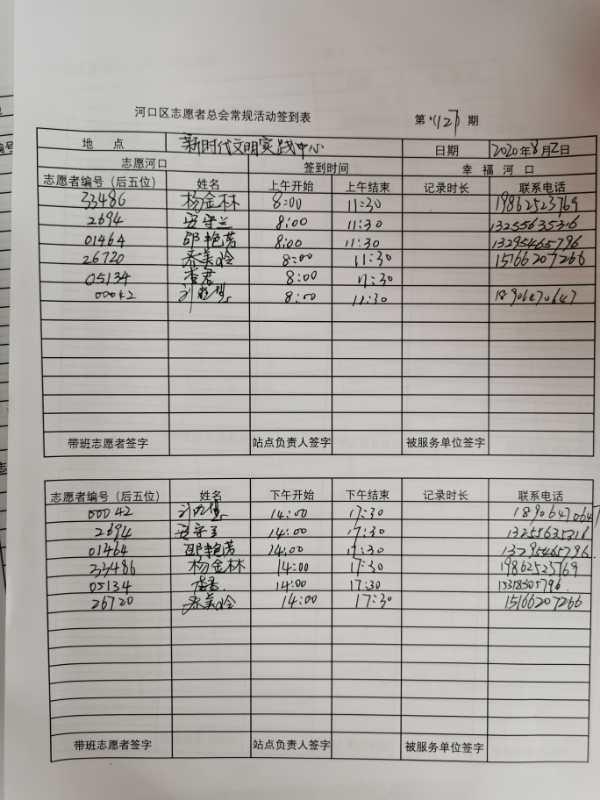 河口区志愿者总会常规活动签到表 第(127)期
地 点 新时代文明实践中心 日期 2020年8月2日
志愿河口 签到时间 幸 福 河 口
志愿者编号（后五位） 姓名 上午开始 上午结束 记录时长 联系电话
33486 杨金林 8:00 11:30 19862523769
2694 安守兰 8:00 11:30 13255635316
01464 邱艳芳 8:00 11:30 13295465796
26720 秦美玲 8:00 11:30 15166207266
05134 8:00 11:30
00042 8:00 11:30 18906470647
带班志愿者签字 站点负责人签字 被服务单位签字
志愿者编号（后五位） 姓名 下午开始 下午结束 记录时长 联系电话
00042 14:00 17:30 18906470647
2694 安守兰 14:00 17:30 13255635316
01464 邱艳芳 14:00 17:30 13295465796
33486 杨金林 14:00 17:30 19862523769
05134 14:00 17:30
26720 秦美玲 14:00 17:30 15166207266
带班志愿者签字 站点负责人签字 被服务单位签字